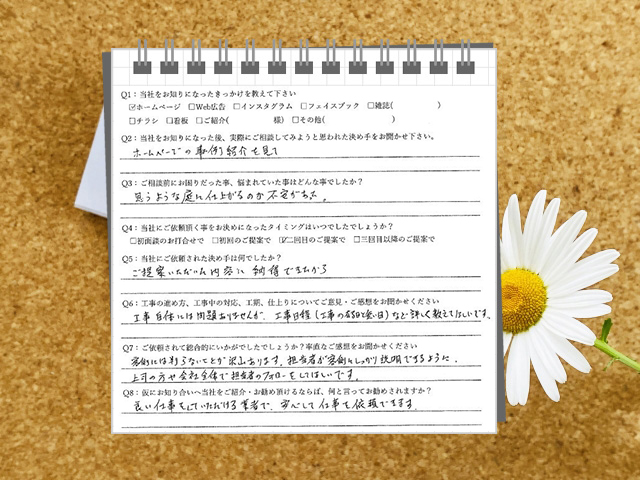 Q1：当社をお知りになったきっかけを教えて下さい
☑ホームページ　□Web広告　□インスタグラム　□フェイスブック　□雑誌(　　　　　)
□チラシ　□看板　□ご紹介(　　　　　様)　□その他(　　　　　　　)
Q2：当社をお知りになった後、実際にご相談してみようと思われた決め手をお聞かせ下さい。
ホームページでの事例紹介を見て
Q3：ご相談前にお困りだった事、悩まれていた事はどんな事でしたか？
思うような庭に仕上がるのか不安があった。
Q4：当社にご依頼頂く事をお決めになったタイミングはいつでしたでしょうか？
□初面談のお打合せで　□初回のご提案で　☑二回目のご提案で　□三回目以降のご提案で
Q5：当社にご依頼された決め手は何でしたか？
ご提案いただいた内容に納得できたから
Q6：工事の進め方、工事中の対応、工期、仕上りについてご意見・ご感想をお聞かせください
工事自体には問題ありませんが、工事日程(工事の有る日で無い日)など詳しく教えてほしいです。
Q7：ご依頼されて総合的にいかがでしたでしょうか？率直なご感想をお聞かせください
客側には判らないことが沢山あります。担当者が客側にしっかり説明できるように、
上司の方や会社全体で担当者のフォローをしてほしいです。
Q8：仮にお知り合いへ当社をご紹介・お勧め頂けるならば、何と言ってお勧めされますか？
良い仕事をしていただける業者で、安心して仕事を依頼できます。